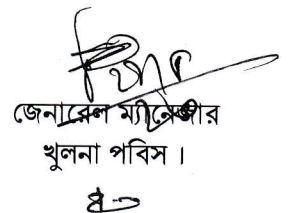 জেনারেল ম্যানেজার
খুলনা পবিস ।